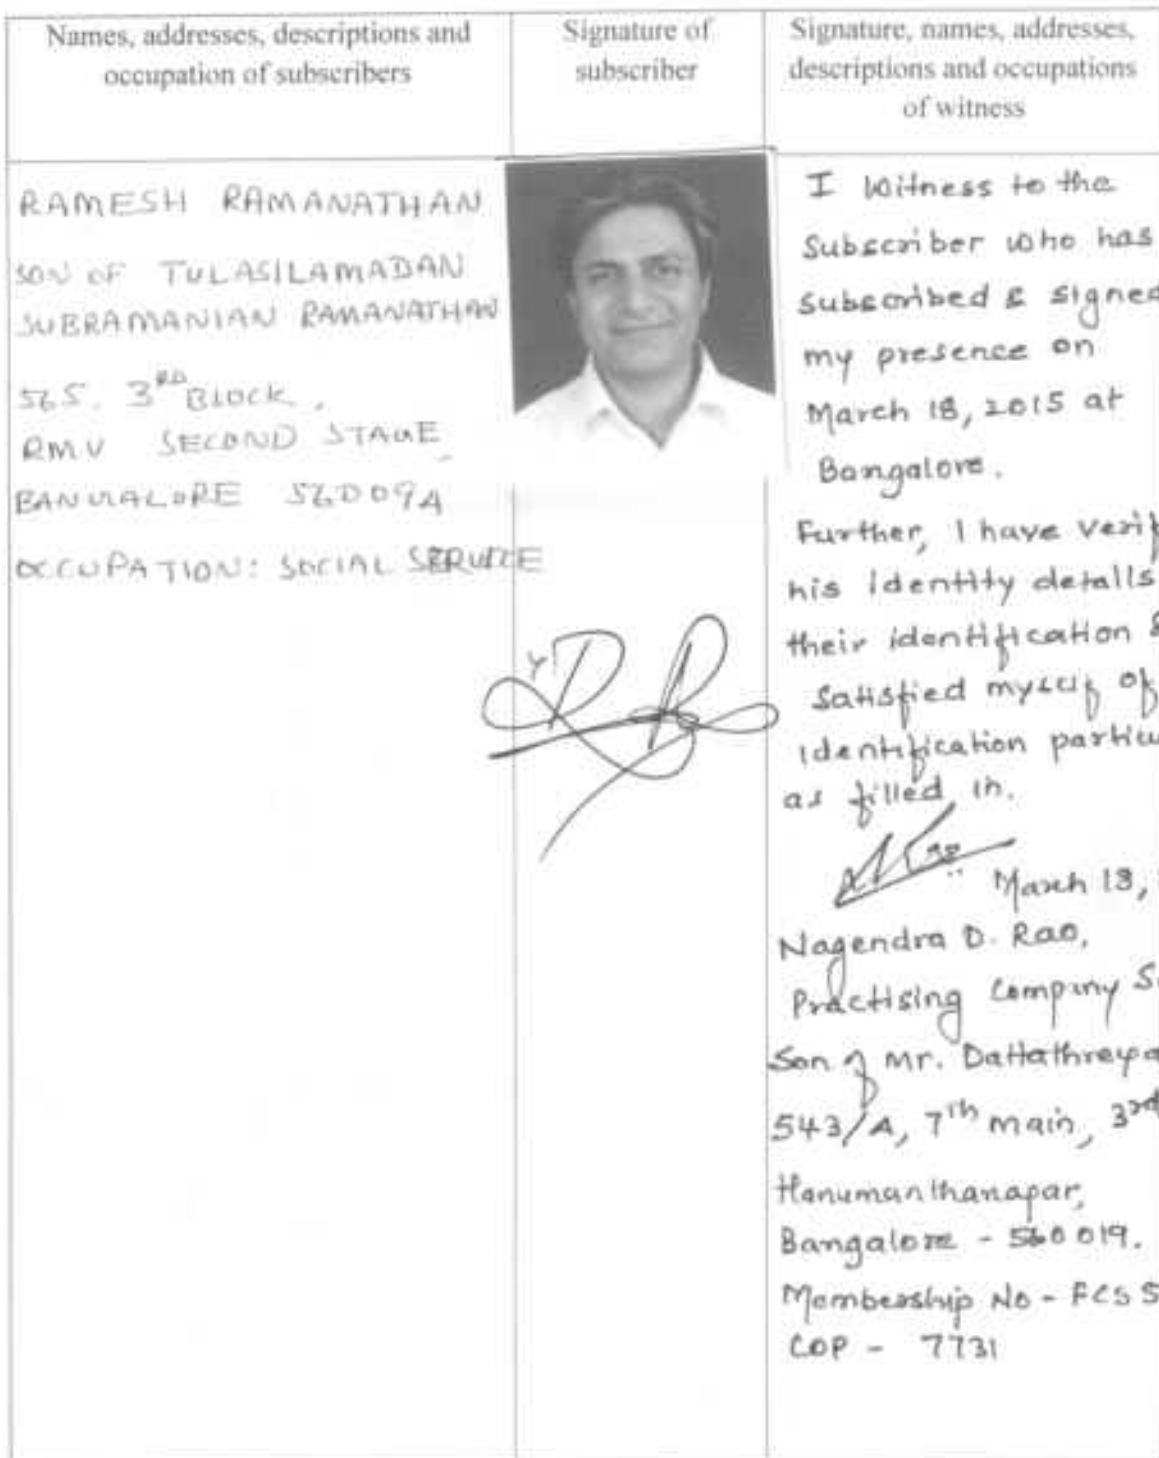 Names, addresses, descriptions and
occupation of subscribers
Signature of
subscriber
Signature, names, addresses,
descriptions and occupations
of witness
RAMESH RAMANATHAN
SON OF TULASILAMADAN
SUBRAMANIAN RAMANATHAN
565, 3RD BLOCK,
RMV SECOND STAGE
BANGALORE 560094
OCCUPATION: SOCIAL SERVICE
I witness to the
Subscriber who has
subscribed & signed
my presence on
March 18, 2015 at
Bangalore.
Further, I have Verif
his identity details
their identification &
satisfied myself of
identification particu
as filled in.
March 18,
Nagendra D. Rao,
Practising Company S
Son of Mr. Dattathreya
543/A, 7th main, 3rd
Hanumanthanagar,
Bangalore - 560 019.
Membership No - FCS 5
COP - 7731